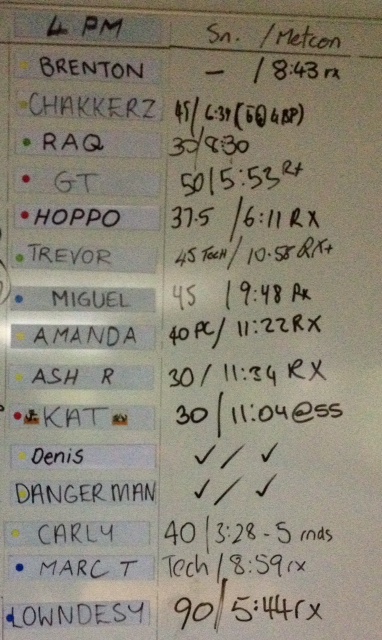 4 PM Sn. / Metcon
BRENTON — / 8:43 rx
CHAKKERZ 45 / 6:39
RAQ 30 / 8:30
GT 50 / 5:53 Rx
HOPPO 37.5 / 6:11 RX
TREVOR 45 Tech / 10.58 RX+
MIGUEL 45 / 9:48 Rx
AMANDA 40 PC / 11:22 RX
ASH R 30 / 11:34 RX
KAT 30 / 11:04 @ 55
Denis ✓ / ✓
DANGERMAN ✓ / ✓
CARLY 40 / 3:28 - 5 rnds
MARC T Tech / 8:59 rx
LOWNDESY 90 / 5:44 rx